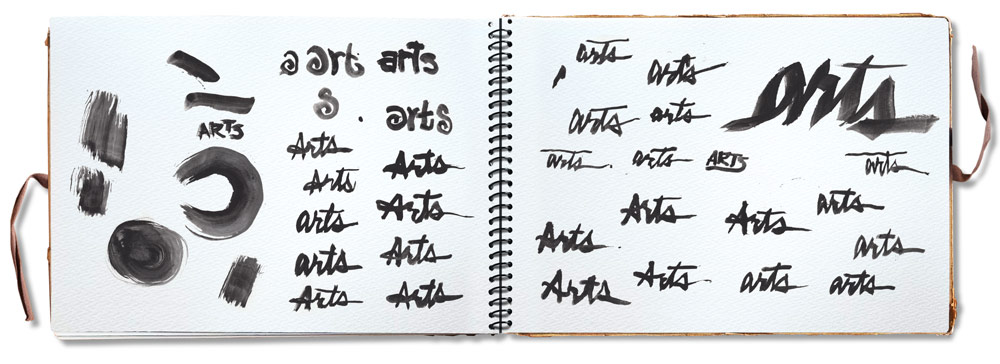 a art arts
ARTS
s arts
Arts Arts
Arts
Arts
arts
Arts
arts
Arts
Arts
arts
arts
arts
arts arts
arts arts ARTS arts
Arts Arts arts
Arts arts
Arts Arts arts arts